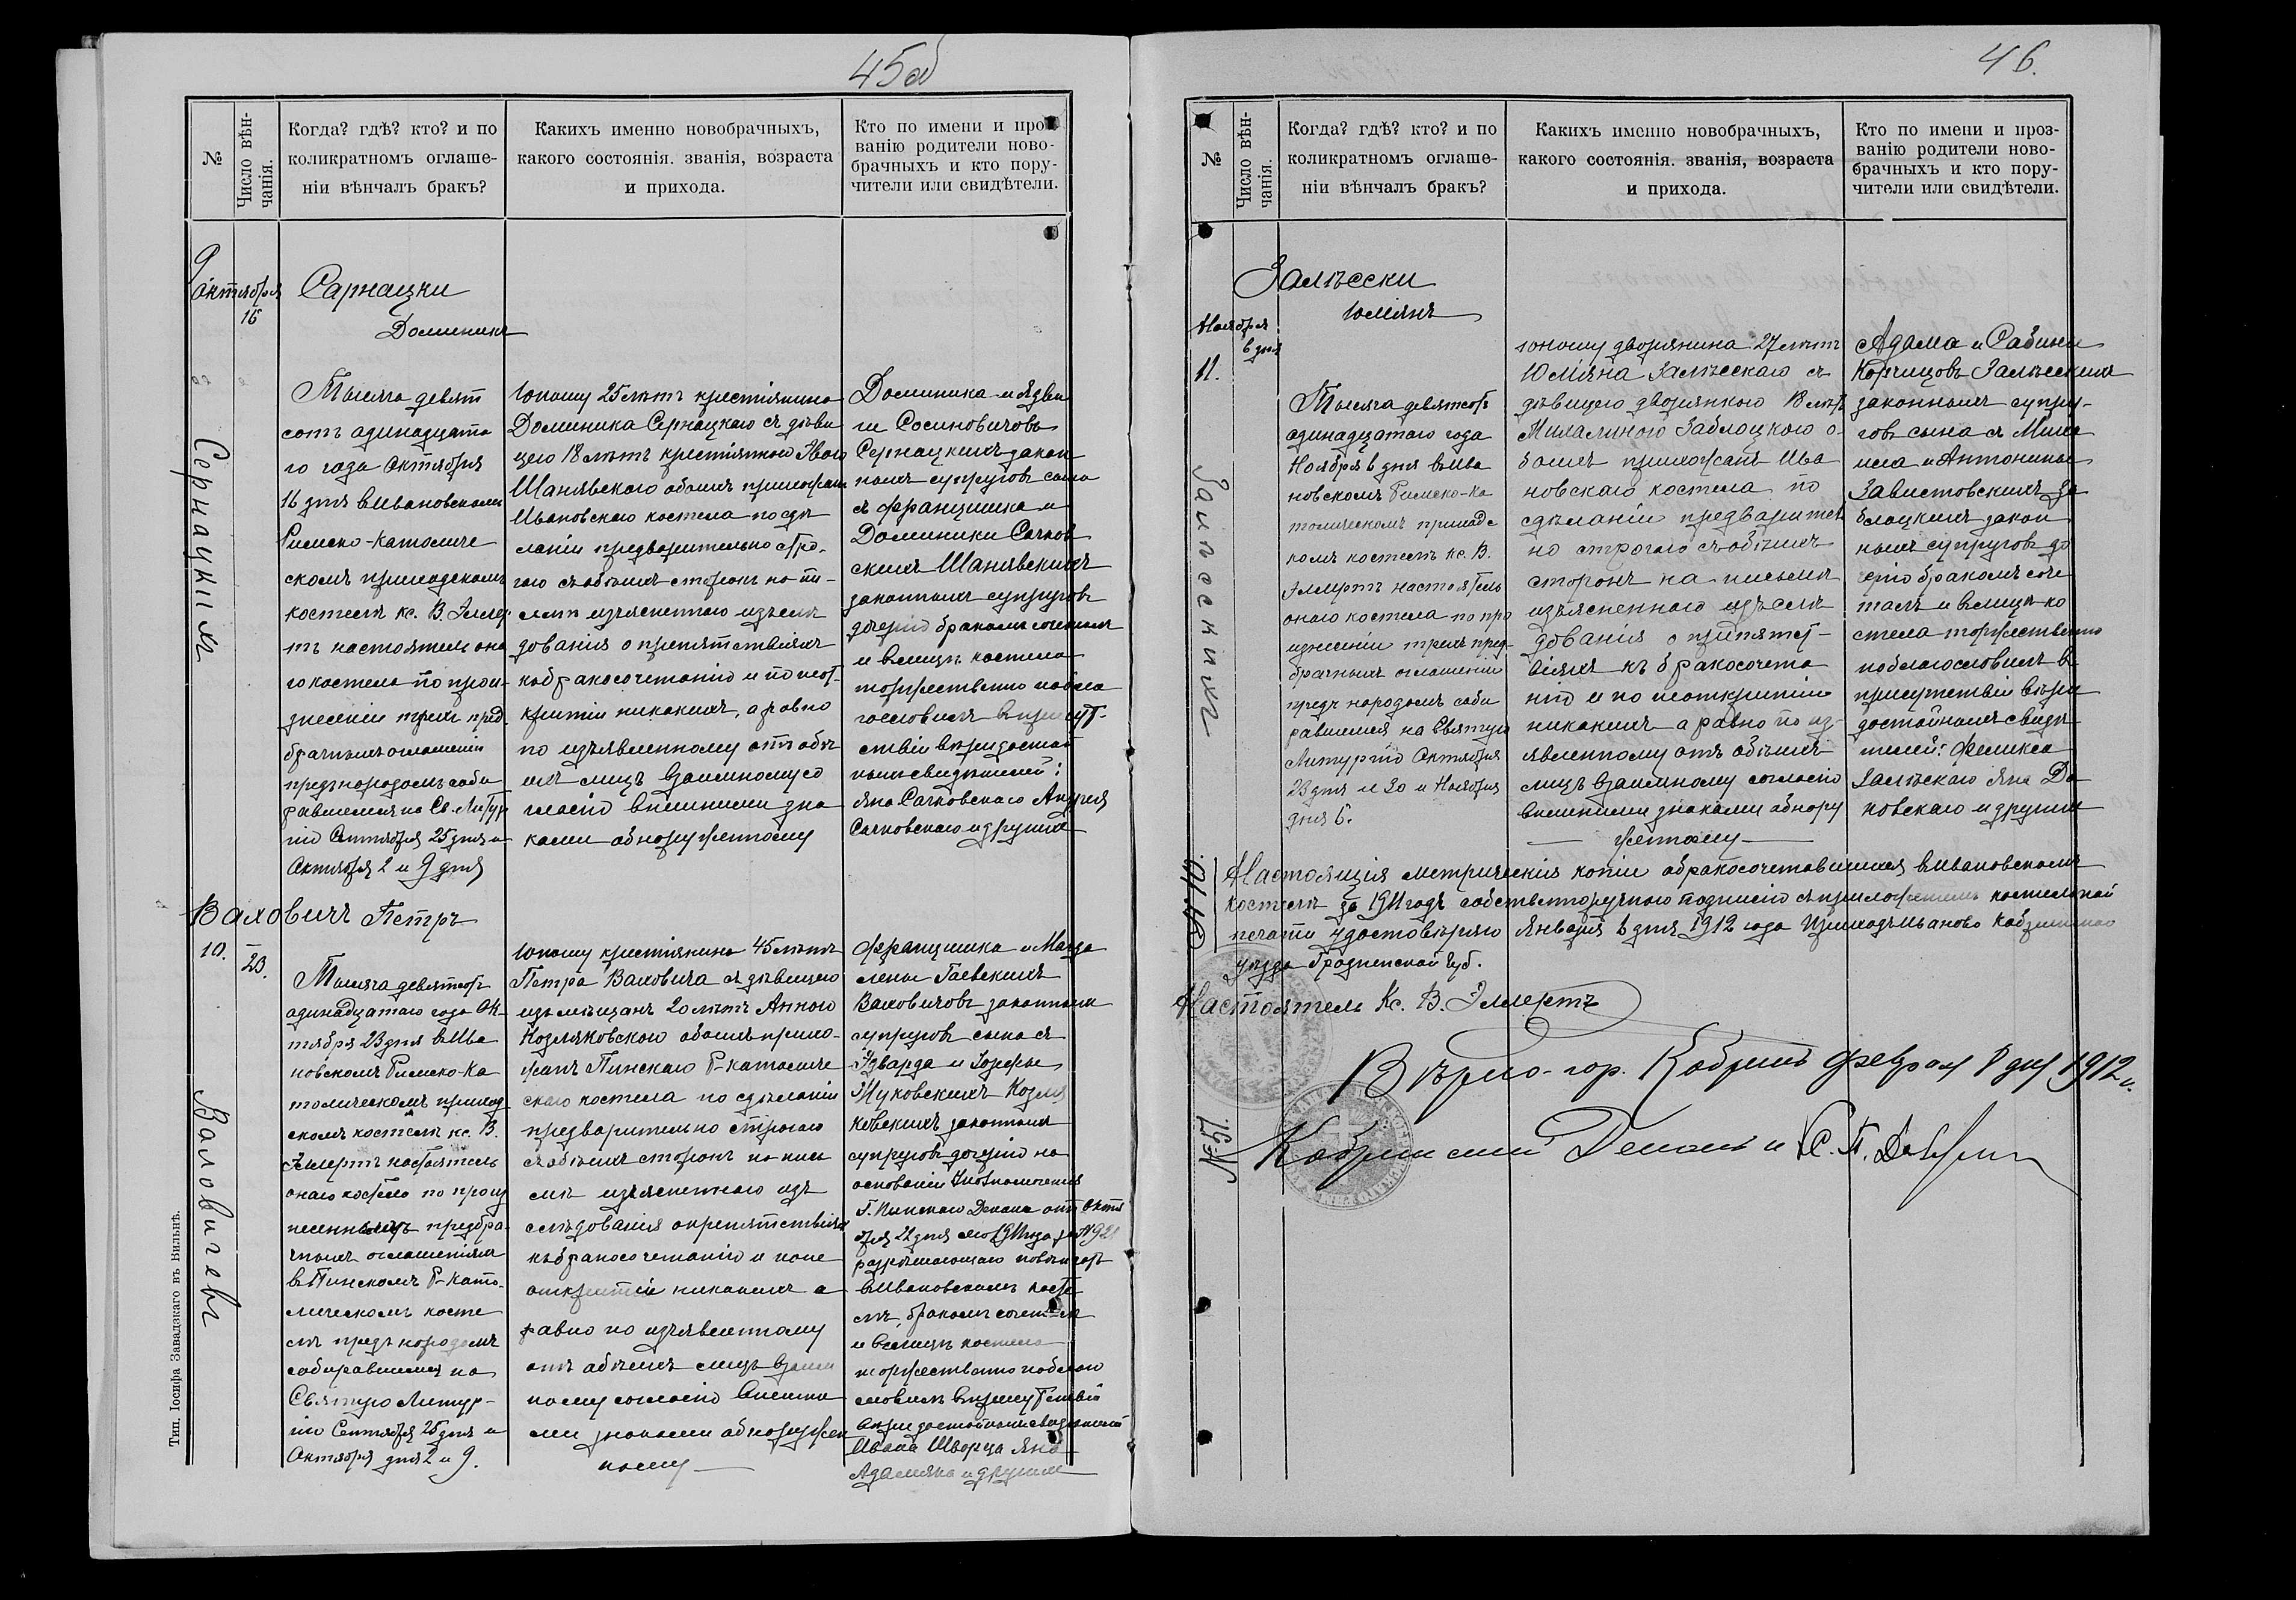 45об
№
Число вѣн-
чанія.
Когда? гдѣ? кто? и по
коликратномъ оглаше-
ніи вѣнчалъ бракъ?
Какихъ именно новобрачныхъ,
какого состоянія. званія, возраста
и прихода.
Кто по имени и проз
ванію родители ново-
брачныхъ и кто пору-
чители или свидѣтели.
9
Октября
16
Сарнацки
Доминикъ
Сернацкихъ
Тысяча девят
сотъ одинадцата
го года Октября
16 дня въ Ивановскомъ
Римско-Католиче
скомъ приходскомъ
костелѣ кс. В. Эллер
тъ настоятель она
го костела по прои-
знесеніи трехъ пред
брачныхъ оглашеній
предъ народомъ соби
равшемся на Св. Литур
гію Сентября 25 дня и
Октября 2 и 9 дня
Юношу 25 лѣтъ крестіянина
Доминика Сернацкаго съ дѣви
цею 18 лѣтъ крестіянкою
Шанявскою обоихъ прихожан
Ивановскаго костела по сдѣ
ланіи предварительно стро-
гаго съ обѣихъ сторонъ на пи-
смѣ изъясненнаго изслѣ
дованія о препятствіяхъ
къ бракосочетанію и по неот-
крытіи никакихъ, а равно
по изъявленному отъ обѣ
ихъ лицъ взаимному со
гласію внѣшними зна
ками обнаруженному
Доминика и Ядви
ги Сосиновичовъ
Сернацкихъ закон
ныхъ супруговъ сына
съ Францишка и
Доминики Сачков
скихъ Шанявскихъ
законныхъ супруговъ
дочерію бракомъ сочеталъ
и въ лицѣ костела
торжественно побла
гословилъ въ присут-
ствіи вѣридостой
ныхъ свидѣтелей:
Яна Сачковскаго Андрея
Сачковскаго и другихъ
Ваховичъ Петръ
10.
23.
Валовичевъ
Тысяча девятсотъ
одинадцатаго года Ок-
тября 23 дня въ Ива
новскомъ Римско-Ка
толическомъ приход
скомъ костелѣ кс. В.
Эллертъ настоятель
онаго костела по произ
несеннымъ предбра-
чнымъ оглашеніямъ
въ Пинскомъ Р-Като-
лическомъ косте
лѣ предъ народомъ
собиравшемся на
Святую Литур-
гію Сентября 25 дня и
Октября дня 2 и 9.
Юношу крестіянина 45 лѣтъ
Петра Ваховича съ дѣвицею
изъ мѣщанъ 20 лѣтъ Анною
Козляковскою обоихъ прихо-
жанъ Пинскаго Р-католиче
скаго костела по сдѣланіи
предварительно строгаго
съ обѣихъ сторонъ на пись
мѣ изъясненнаго изъ
слѣдованія о препятствіяхъ
къ бракосочетанію и по не
открытіи никакихъ а
равно по изъявленному
отъ обѣихъ лицъ взаим
ному согласію внѣшни
ми знаками обнаружен
ному
Францишка и Магда
лены Гаевскихъ
Ваховичовъ законныхъ
супруговъ сына съ
Эдварда и Іозефы
Жуковскихъ Козля
ковскихъ законныхъ
супруговъ дочерію на
основаніи Упозномоченія
Г. Пинскаго Декана отъ Октя
бря 22 дня 1911 года за № 921
разрѣшающаго повѣнчать
въ Ивановскомъ косте
лѣ, бракомъ сочеталъ
и въ лицѣ костела
торжественно поблаго
словилъ въ присутствіи
вѣридостойныхъ свидѣтелей
Ивана Шворца Яна
Адамяка и другихъ
Тип. Іосифа Завадзкаго въ Вильнѣ.
46.
№
Число вѣн-
чанія.
Когда? гдѣ? кто? и по
коликратномъ оглаше-
ніи вѣнчалъ бракъ?
Какихъ именно новобрачныхъ,
какого состоянія. званія, возраста
и прихода.
Кто по имени и проз-
ванію родители ново-
брачныхъ и кто пору-
чители или свидѣтели.
Залѣски
Юліянъ
Ноября
6 дня
11.
Залѣскихъ
Тысяча девятсотъ
одинадцатаго года
Ноября 6 дня въ Ива
новскомъ Римско-Ка
толическомъ приходс
комъ костелѣ кс. В.
Эллертъ настоятель
онаго костела по про
изнесеніи трехъ пред-
брачныхъ оглашеній
предъ народомъ соби
равшемся на Святую
Литургію Октября
23 дня и 30 и Ноября
дня 6.
Юношу дворянина 27 лѣтъ
Юліяна Залѣсскаго съ
дѣвицею дворянкою 18 лѣтъ
Заблоцкою о-
боихъ прихожанъ Ива
новскаго костела по
сдѣланіи предварител
но строгаго съ обѣихъ
сторонъ на письмѣ
изъясненнаго изъслѣ
дованія о припятст-
віяхъ къ бракосочета
нію и по неоткрытіи
никакихъ а равно по из-
явленному отъ обѣихъ
лицъ взаимному согласію
внѣшними знаками обнару
женному
Адама и Сабины
Корчицовъ Залѣскихъ
законныхъ супру-
говъ сына съ Миха
ила и Антонины
Завистовскихъ За
блоцкихъ закон
ныхъ супруговъ до
черію бракомъ соче
талъ и въ лицѣ ко
стела торжественно
поблагословилъ въ
присутствіи вѣри
достойныхъ свидѣ
телей: Феликса
Залѣскаго Яна
ковскаго и другихъ
Настоящія метрическія копіи обракосочетавшихся въ Ивановскомъ
костелѣ за 1911 годъ собственноручною подписію съ приложеніемъ костельной
печати удостовѣряю Января 6 дня 1912 года Приходъ Иваново Кобринскаго
уѣзда Гродненской губ.
Настоятель Кс. В. Эллертъ
Вѣрно гор. Кобринъ Февраля 8 дня 1912 г.
Кобринскій Деканъ Кс. П.